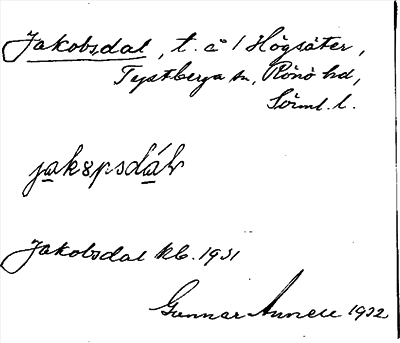 Jakobsdal, t. å 1 Högsäter,
Tystberga sn, Rönö hd,
Sörml. l.
jakȣpsdáɫ
Jakobsdal kb. 1931
Gunnar 1932